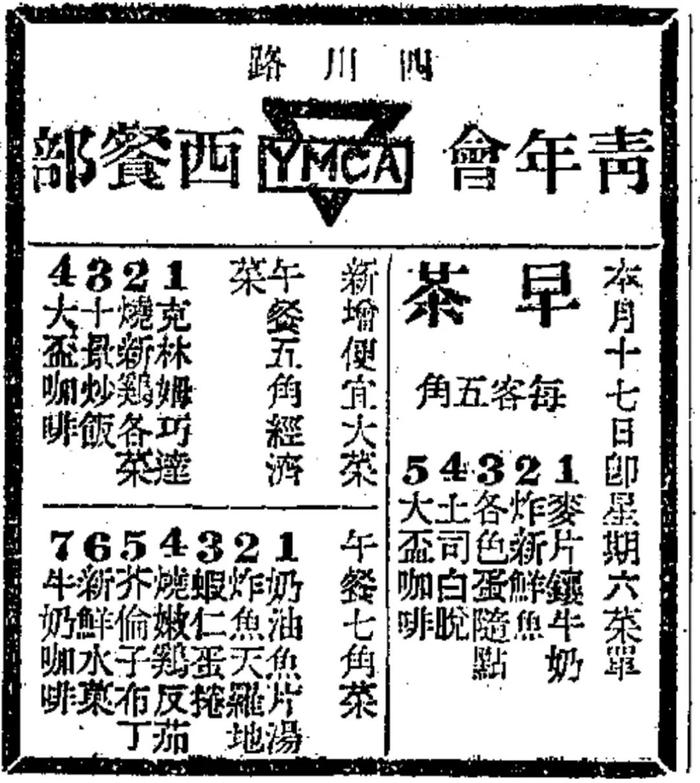 四川路
青年會 YMCA 西餐部
本月十七日即星期六菜單
早茶
每客五角
1麥片鑲牛奶
2炸新鮮魚
3各色蛋隨點
4土司白脫
5大盃咖啡
新增便宜大菜
午餐五角經濟菜
1克林姆巧達
2燒新鷄各菜
3十景炒飯
4大盃咖啡
午餐七角菜
1奶油魚片湯
2炸魚天羅地
3蝦仁蛋捲
4燒嫩鷄反茄
5芥倫子布丁
6新鮮水菓
7牛奶咖啡